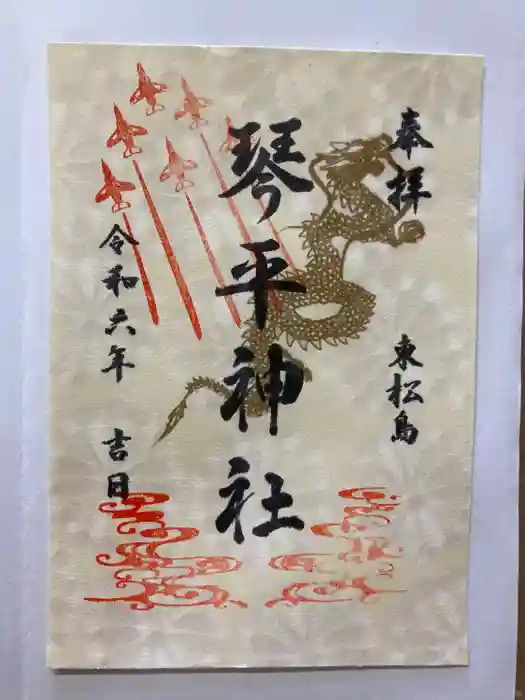 奉拝
東松島
琴平神社
令和六年
吉日